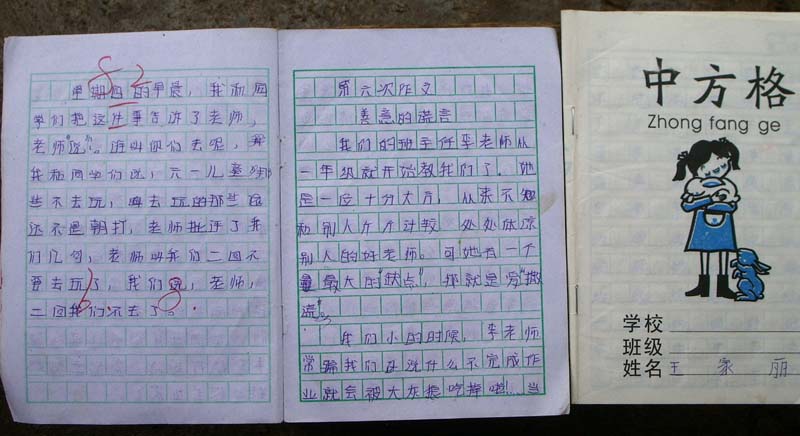 82
星期四的早晨，我和同
学们把这件事告诉了老师，
老师说：谁叫你们去呢，
我和同学们说，六一儿童
些不去玩，再去玩的那些
还不是朝打，老师批评了我
们几句，老师叫我们二回不
要去玩了，我们说，老师，
二回我们不去了。
第六次作文
善意的谎言
我们的班主任李老师从
一年级就开始教我们了。她
是一位十分大方，从来不
和别人斤斤计较 处处体凉
别人的好老师。可她有一个
量最大的"缺点"，那就是爱"撒
流"。
我们小的时候，李老师
常骗我们再说什么不完成作
业就会被大灰狼吃掉啦！当
中方格
Zhong fang ge
学校
班级
姓名 王家丽